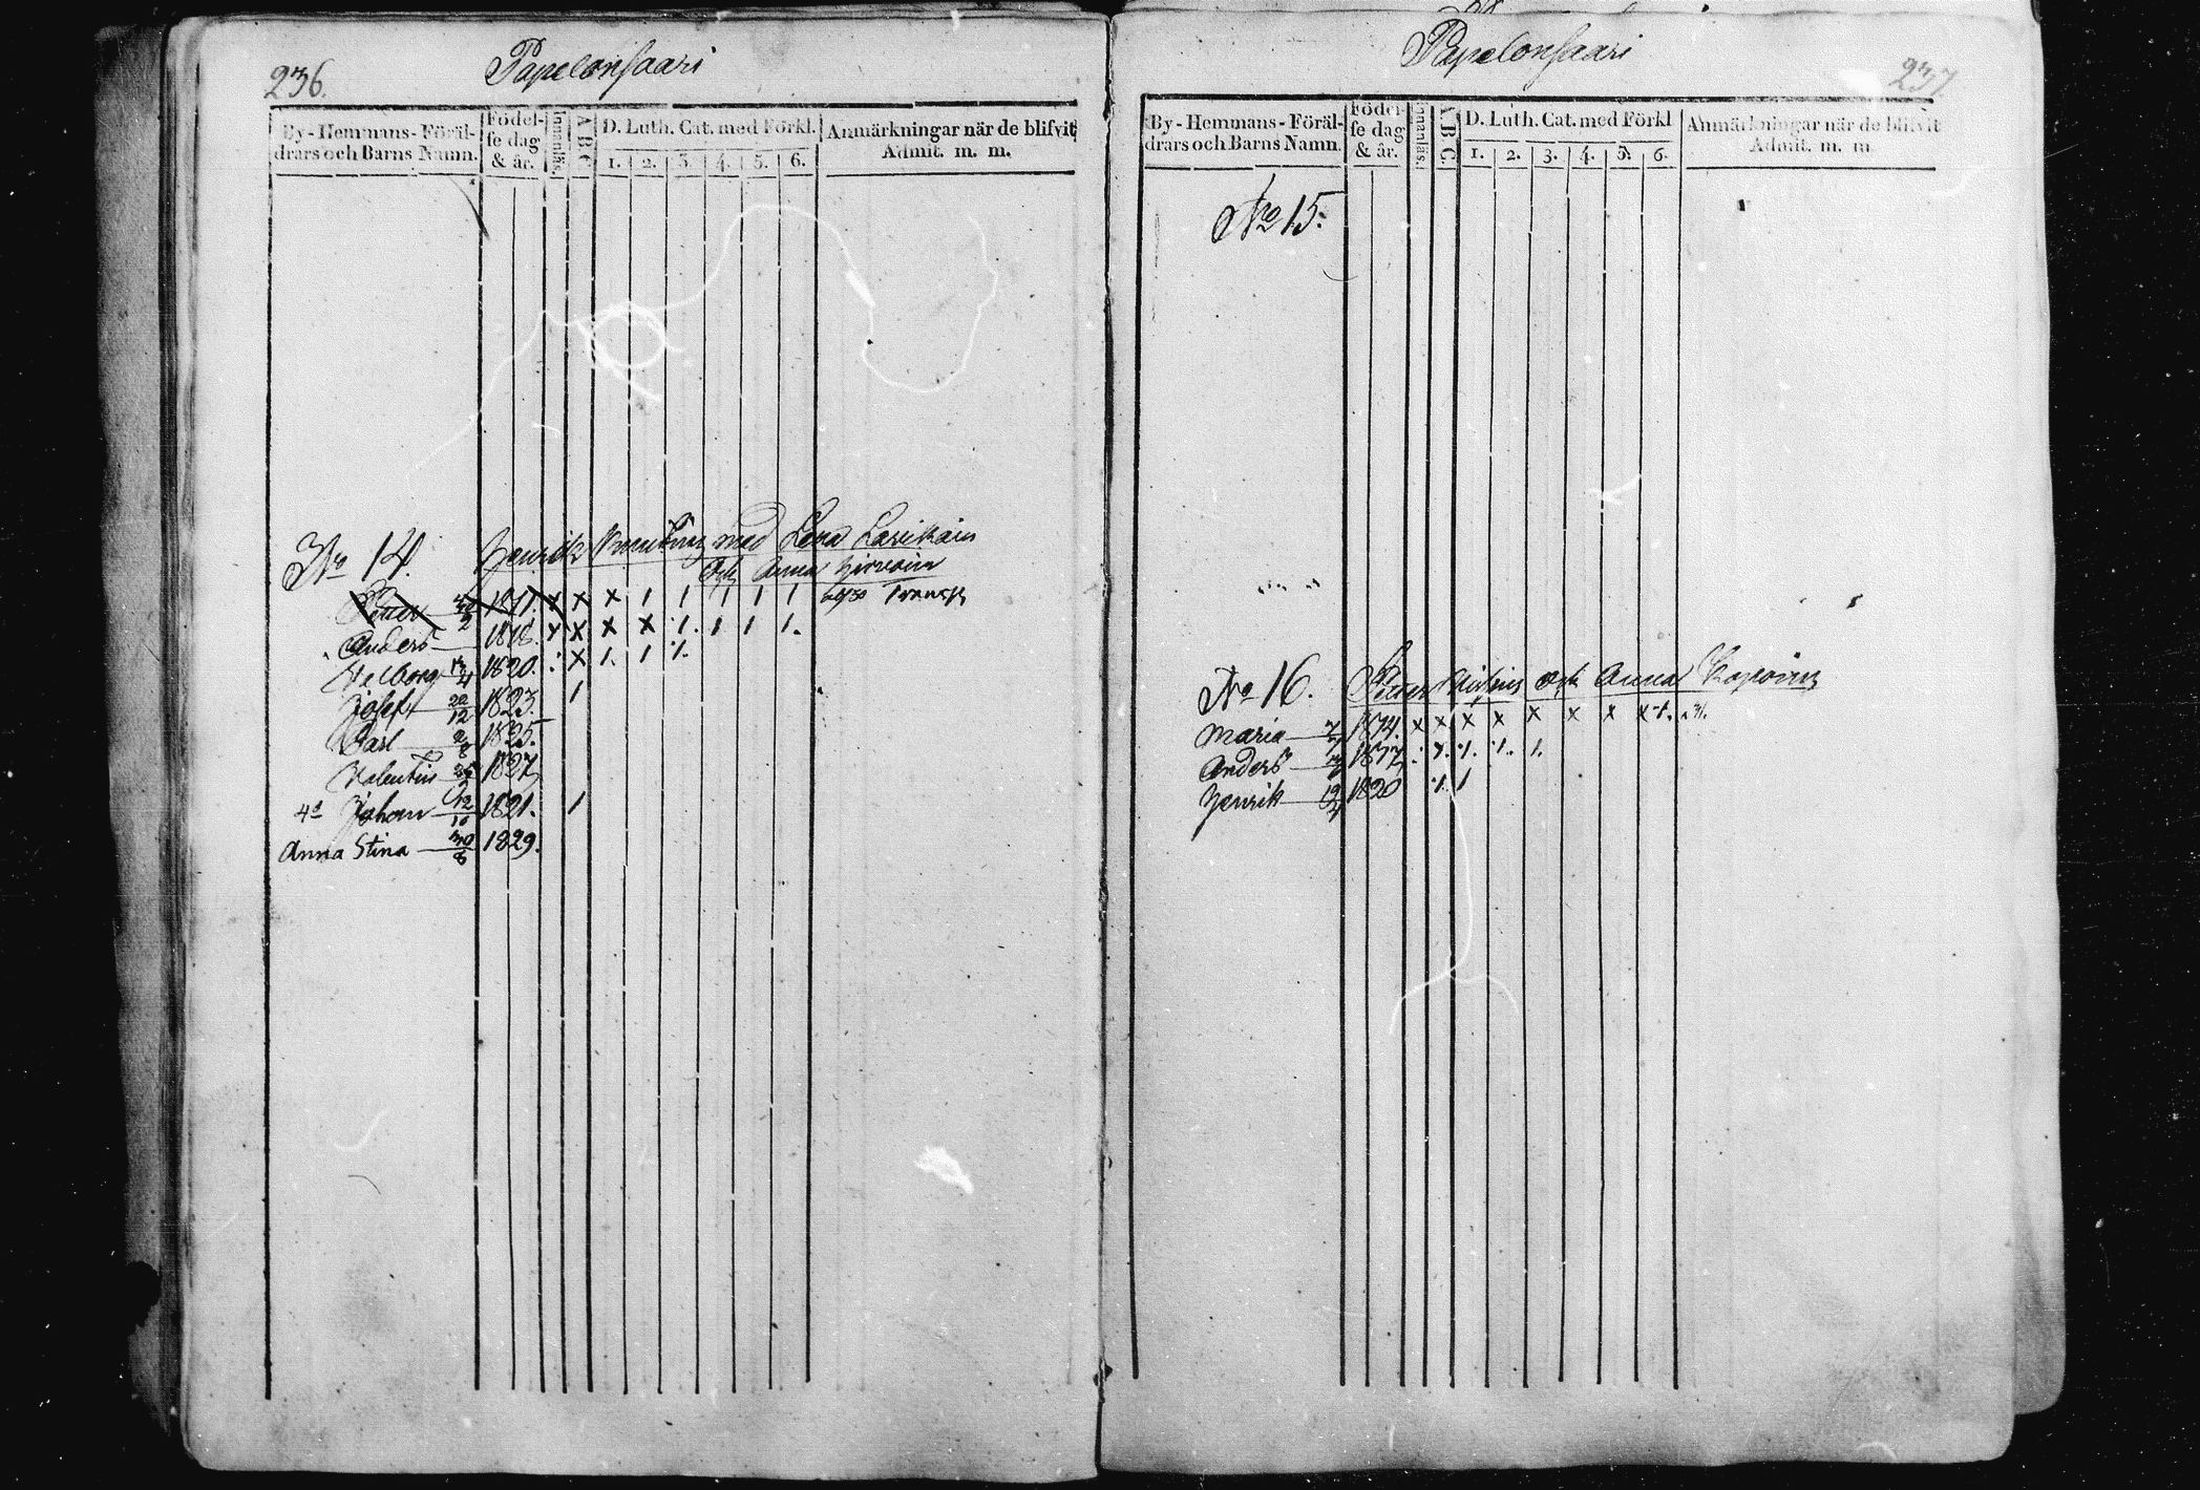 236.
Papelonsaari
By-Hemmans-Föräl-
drars och Barns Namn.
Födel-
se dag
& år.
Innanläs.
A B C
D. Luth. Cat. med Förkl.
1. 2. 3. 4. 5. 6.
Anmärkningar när de blifvit
Admit. m. m.
No 14. Henrik med Lena Lasikain
och Anna Hirvoin
Petter 1817. x x x 1 1 1 1 1
Anders 1818. x x x x 1. 1 1 1.
Velborg 1820. x 1. 1 1.
Josef 20/12 1823. 1
Carl 1825.
Valentin 1827
Johan 12/10 1821. 1
Anna Stina 30/8 1829.
237
Papelonsaari
By-Hemmans-Föräl-
drars och Barns Namn.
Födel-
se dag
& år.
Innanläs.
A B C.
D. Luth. Cat. med Förkl
1. 2. 3. 4. 5. 6.
Anmärkningar när de blifvit
Admit. m. m
No 15.
No 16. Petter och Anna
Maria 1814. x x x x x x x x
Anders 1817
Henrik 1820